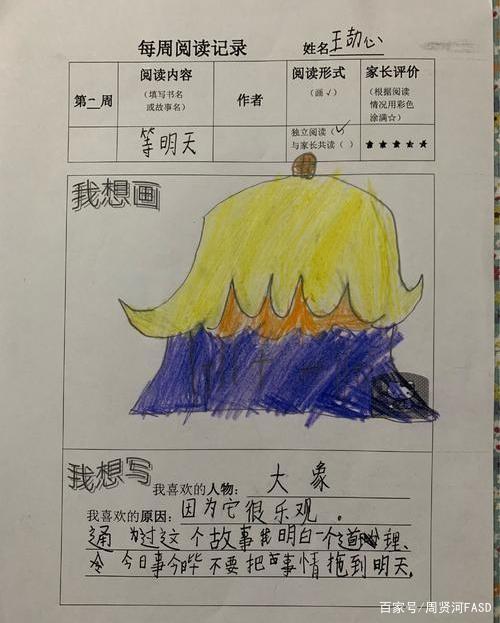 每周阅读记录 姓名王劼心
第一周 阅读内容 (填写书名 或故事名) 作者 阅读形式 (画√) 家长评价 (根据阅读 情况用彩色 涂满☆)
等明天 独立阅读(✓) 与家长共读( ) ★★★★★
我想画
我想写 我喜欢的人物：大象
我喜欢的原因：因为它很乐观.
通过这个故事我明白一个道理、
今日事今 不要把 事情拖到明天.
百家号/周贤河FASD